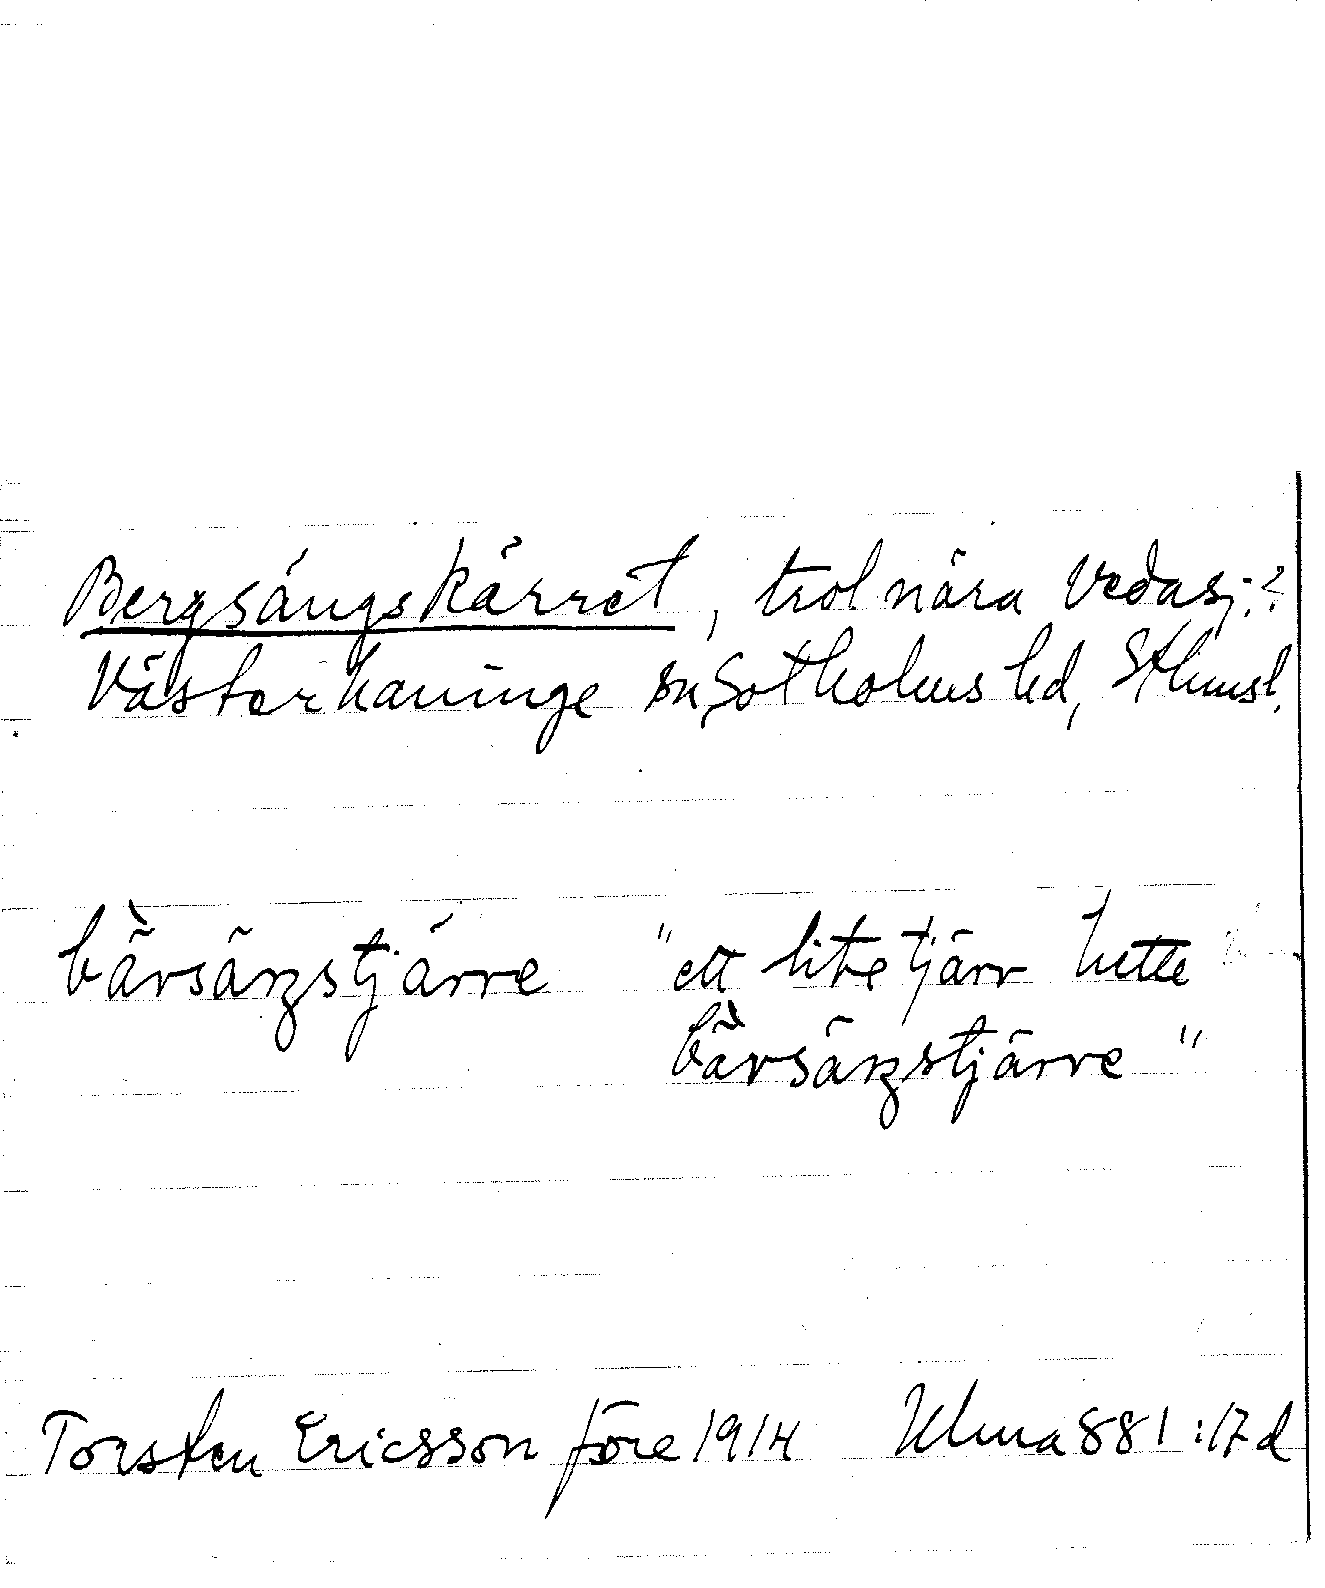 Bergsängskärret, trol nära Vedasj:?
Västerhaninge sn, Sotholms hd, Sthmsl.
bärsäŋstjärre "ett lite tjärr hette
bärsäŋstjärre"
Torsten Ericsson före 1914 Ulma 881:17d